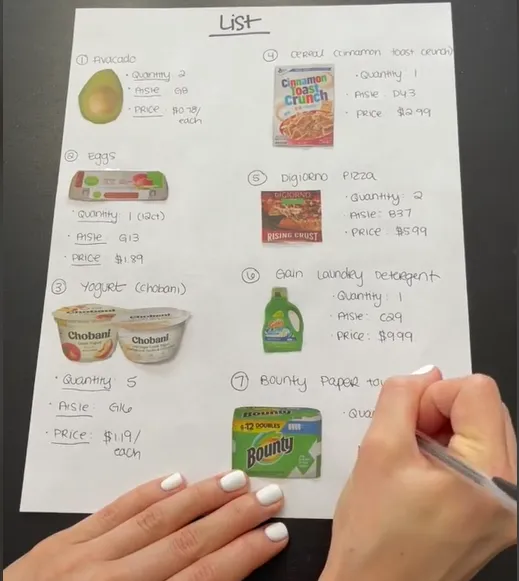 List
① Avacado
• Quantity: 2
• Aisle: G8
• Price: $0.78/
each
② Eggs
• Quantity 1 (12ct)
• Aisle: G13
• Price: $1.89
③ Yogurt (chobani)
Chobani
Chobani
• Quantity: 5
• Aisle: G16
• Price: $1.19/
each
④ Cereal (cinnamon toast crunch)
Cinnamon
Toast
Crunch
• Quantity: 1
• Aisle: D43
• Price: $2.99
⑤ Digiorno Pizza
DIGIORNO
RISING CRUST
• Quantity: 2
• Aisle: B37
• Price: $5.99
⑥ Gain Laundry Detergent
• Quantity: 1
• Aisle: C29
• Price: $9.99
⑦ Bounty Paper
Bounty
6=12 DOUBLES
Bounty